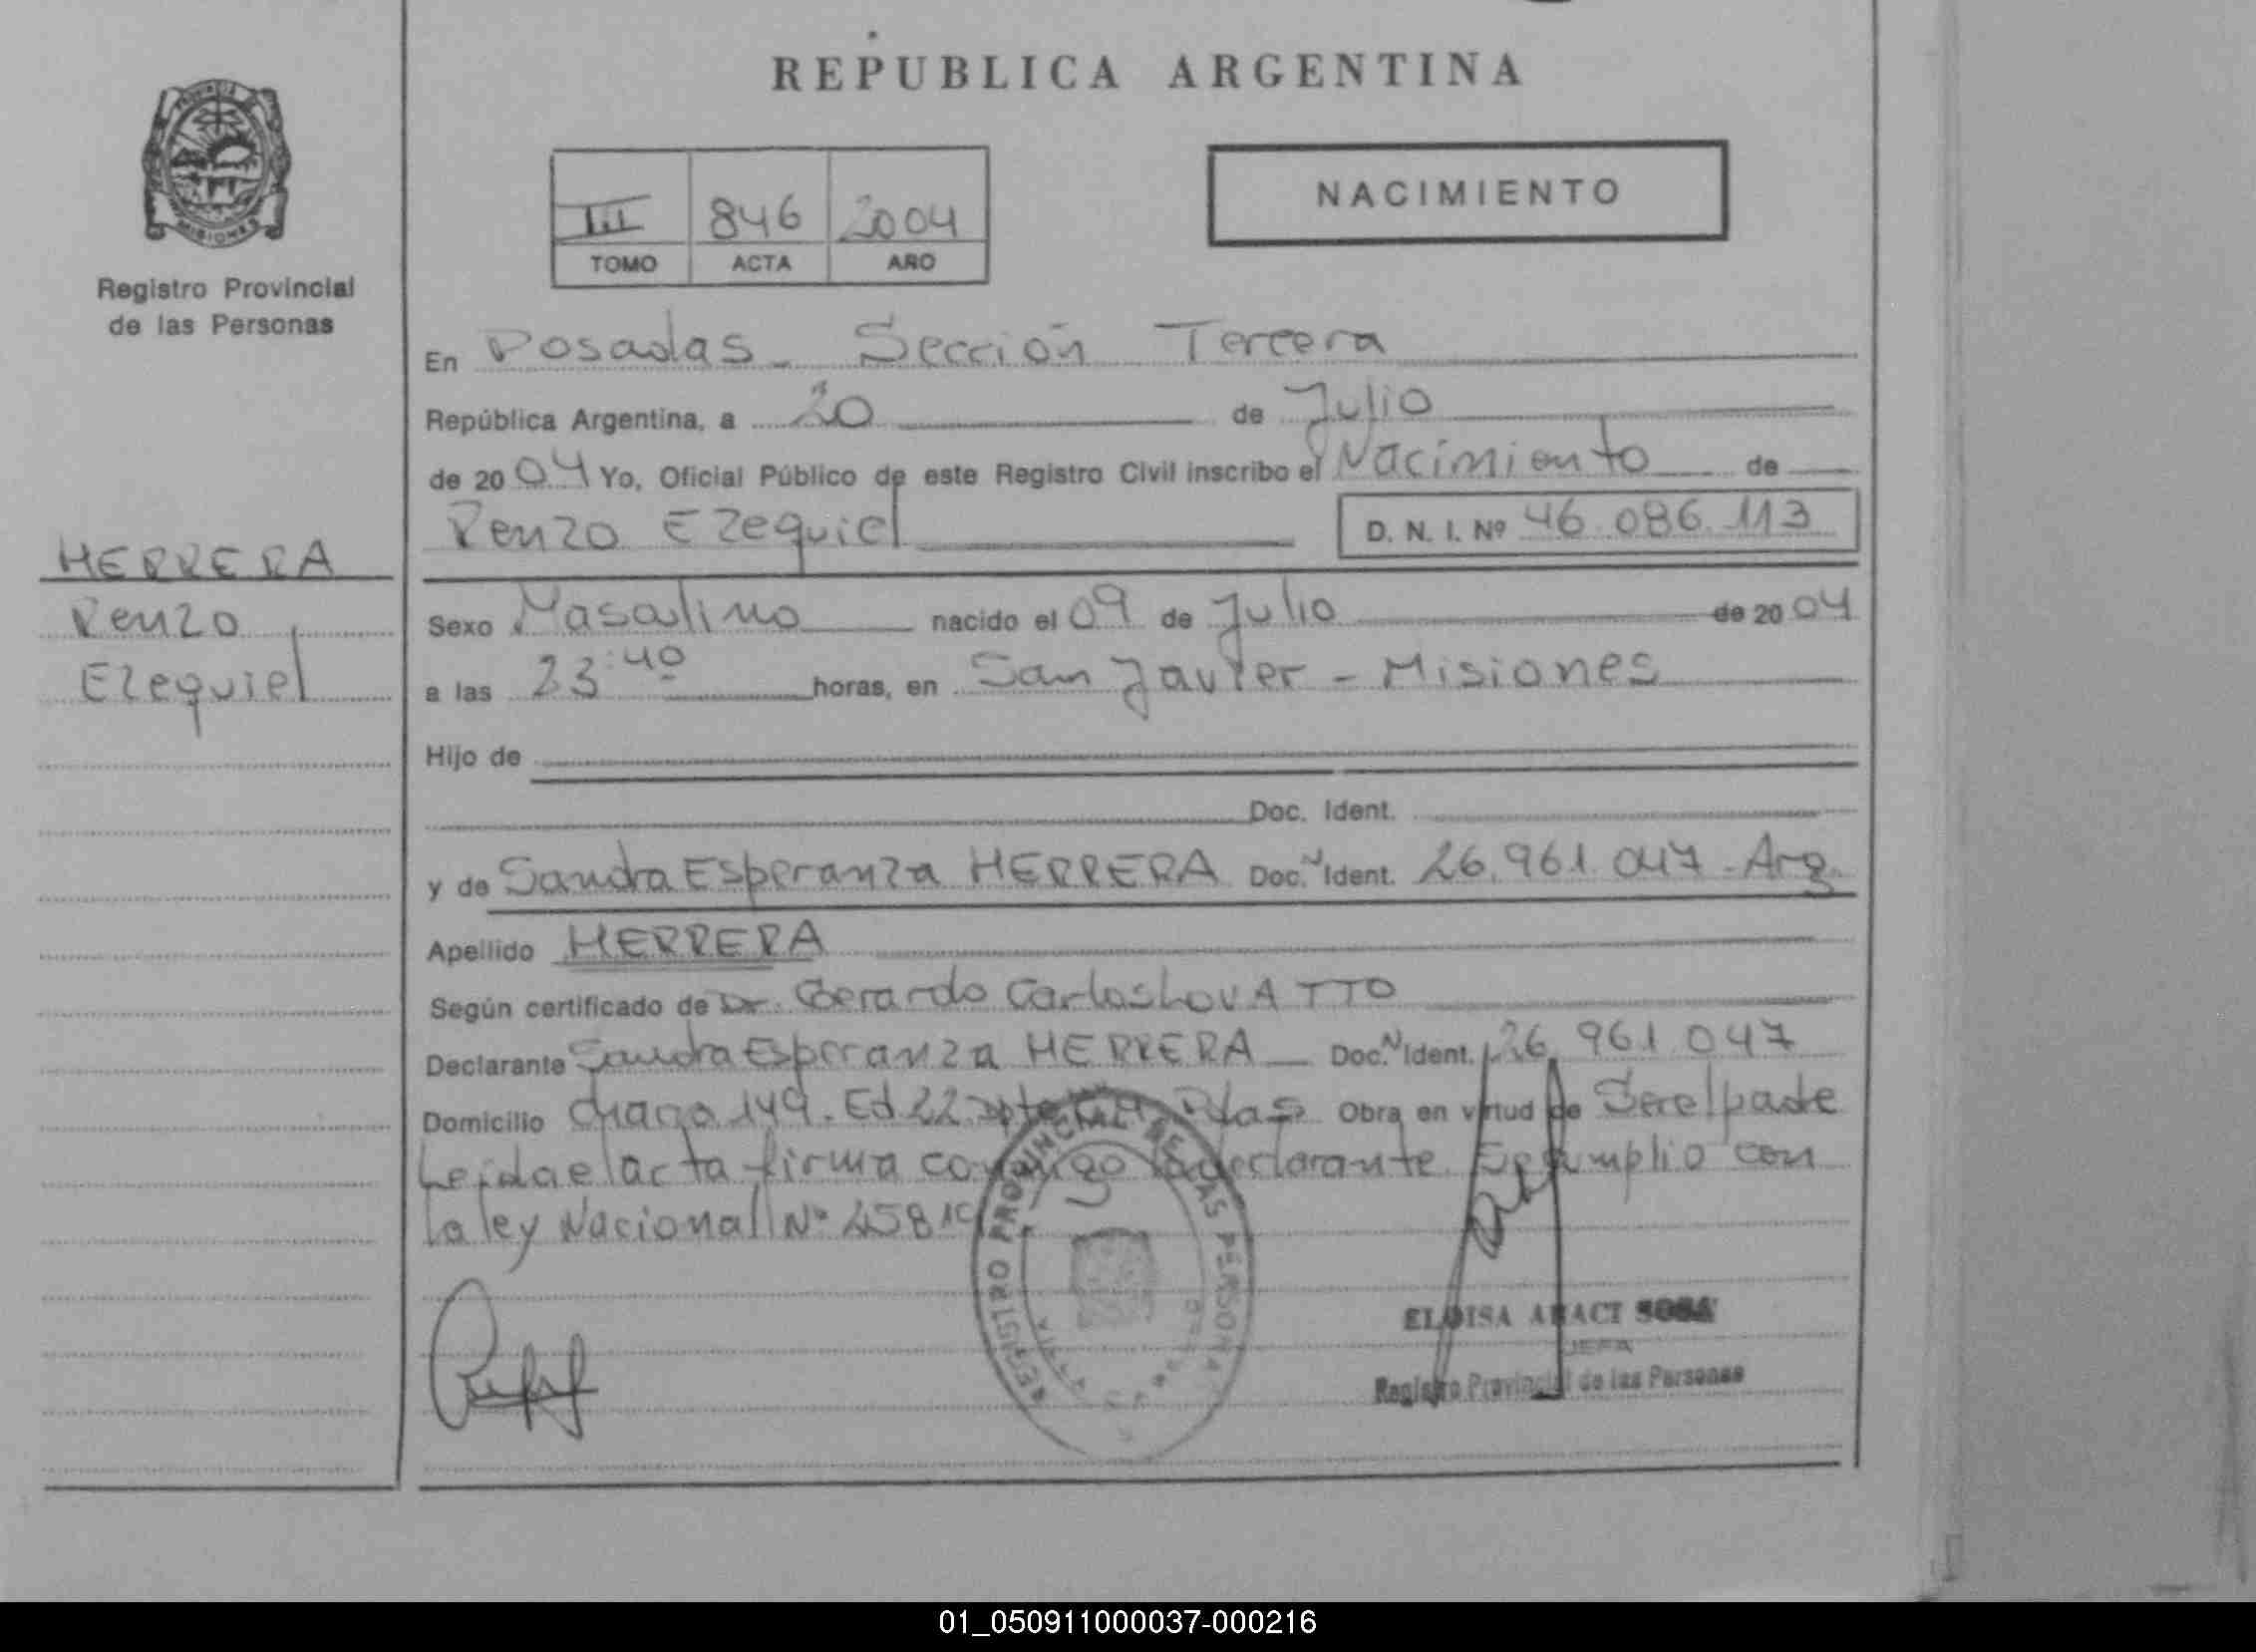 REPUBLICA ARGENTINA
PROVINCIA DE
MISIONES
Registro Provincial
de las Personas
HERRERA
Renzo
Ezequiel
III 846 2004
TOMO ACTA AÑO
NACIMIENTO
En Posadas - Sección Tercera
República Argentina, a 20 de Julio
de 20 04 Yo, Oficial Público de este Registro Civil inscribo el Nacimiento de
Renzo Ezequiel D. N. I. Nº 46.086.113
Sexo Masculino nacido el 09 de Julio de 20 04
a las 23:40 horas, en San Javier - Misiones
Hijo de
Doc. Ident.
y de Sandra Esperanza HERRERA Doc. N Ident. 26.961.047 - Arg.
Apellido HERRERA
Según certificado de Dr. Gerardo Carlos LOVATTO
Declarante Sandra Esperanza HERRERA Doc. N Ident. 26.961.047
Domicilio Chaco 149. Ed 22 Pdas Obra en virtud de Ser el padre
Leida el acta firma conmigo la declarante Se cumplio con
la ley Nacional Nº
REGISTRO PROVINCIAL DE LAS PERSONAS
ELOISA ARACI SOSA
JEFA
Registro Provincial de las Personas
01_050911000037-000216